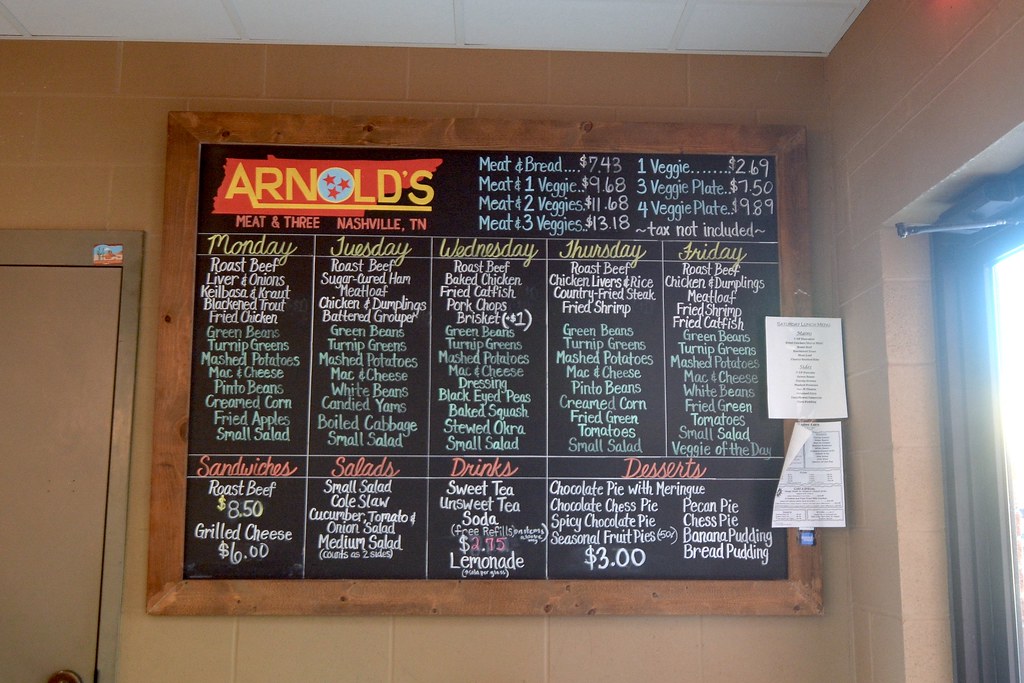 ARNOLD'S
MEAT & THREE NASHVILLE, TN
Meat & Bread....$7.43
Meat & 1 Veggie..$9.68
Meat & 2 Veggies..$11.68
Meat & 3 Veggies..$13.18
1 Veggie.......$2.69
3 Veggie Plate..$7.50
4 Veggie Plate..$9.89
~tax not included~
Monday
Roast Beef
Liver & Onions
Keilbasa & Kraut
Blackened Trout
Fried Chicken
Green Beans
Turnip Greens
Mashed Potatoes
Mac & Cheese
Pinto Beans
Creamed Corn
Fried Apples
Small Salad
Tuesday
Roast Beef
Sugar-Cured Ham
Meatloaf
Chicken & Dumplings
Battered Grouper
Green Beans
Turnip Greens
Mashed Potatoes
Mac & Cheese
White Beans
Candied Yams
Boiled Cabbage
Small Salad
Wednesday
Roast Beef
Baked Chicken
Fried Catfish
Pork Chops
Brisket (+$1)
Green Beans
Turnip Greens
Mashed Potatoes
Mac & Cheese
Dressing
Black Eyed Peas
Baked Squash
Stewed Okra
Small Salad
Thursday
Roast Beef
Chicken Livers & Rice
Country-Fried Steak
Fried Shrimp
Green Beans
Turnip Greens
Mashed Potatoes
Mac & Cheese
Pinto Beans
Creamed Corn
Fried Green
Tomatoes
Small Salad
Friday
Roast Beef
Chicken & Dumplings
Meatloaf
Fried Shrimp
Fried Catfish
Green Beans
Turnip Greens
Mashed Potatoes
Mac & Cheese
White Beans
Fried Green
Tomatoes
Small Salad
Veggie of the Day
Sandwiches
Roast Beef
$8.50
Grilled Cheese
$6.00
Salads
Small Salad
Cole Slaw
Cucumber, Tomato &
Onion Salad
Medium Salad
(counts as 2 sides)
Drinks
Sweet Tea
Unsweet Tea
Soda
(free Refills)
$2.75
Lemonade
Desserts
Chocolate Pie with Meringue
Chocolate Chess Pie
Spicy Chocolate Pie
Seasonal Fruit Pies (50¢)
$3.00
Pecan Pie
Chess Pie
Banana Pudding
Bread Pudding